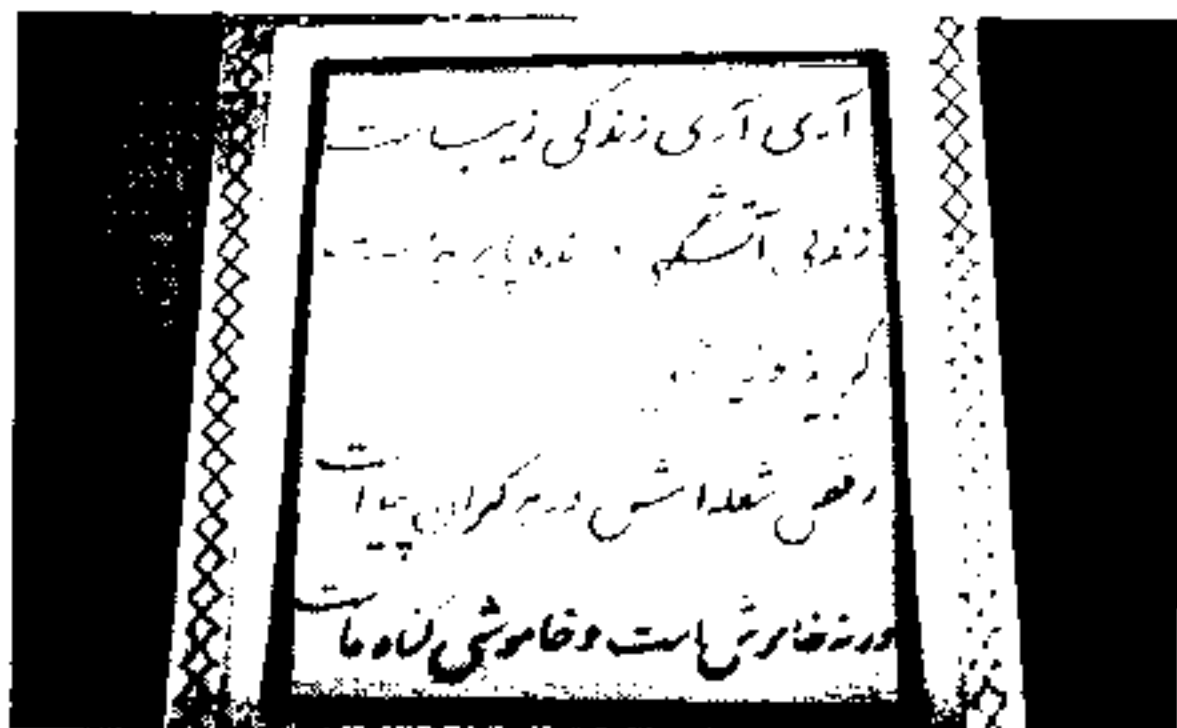 آری آری زندگی زیباست
زندگی آتشگهی دیرنده پابرجاست
گر بیفروزیش
رقص شعله‌اش در هر کران پیداست
ورنه خاموش است و خاموشی گناه ماست